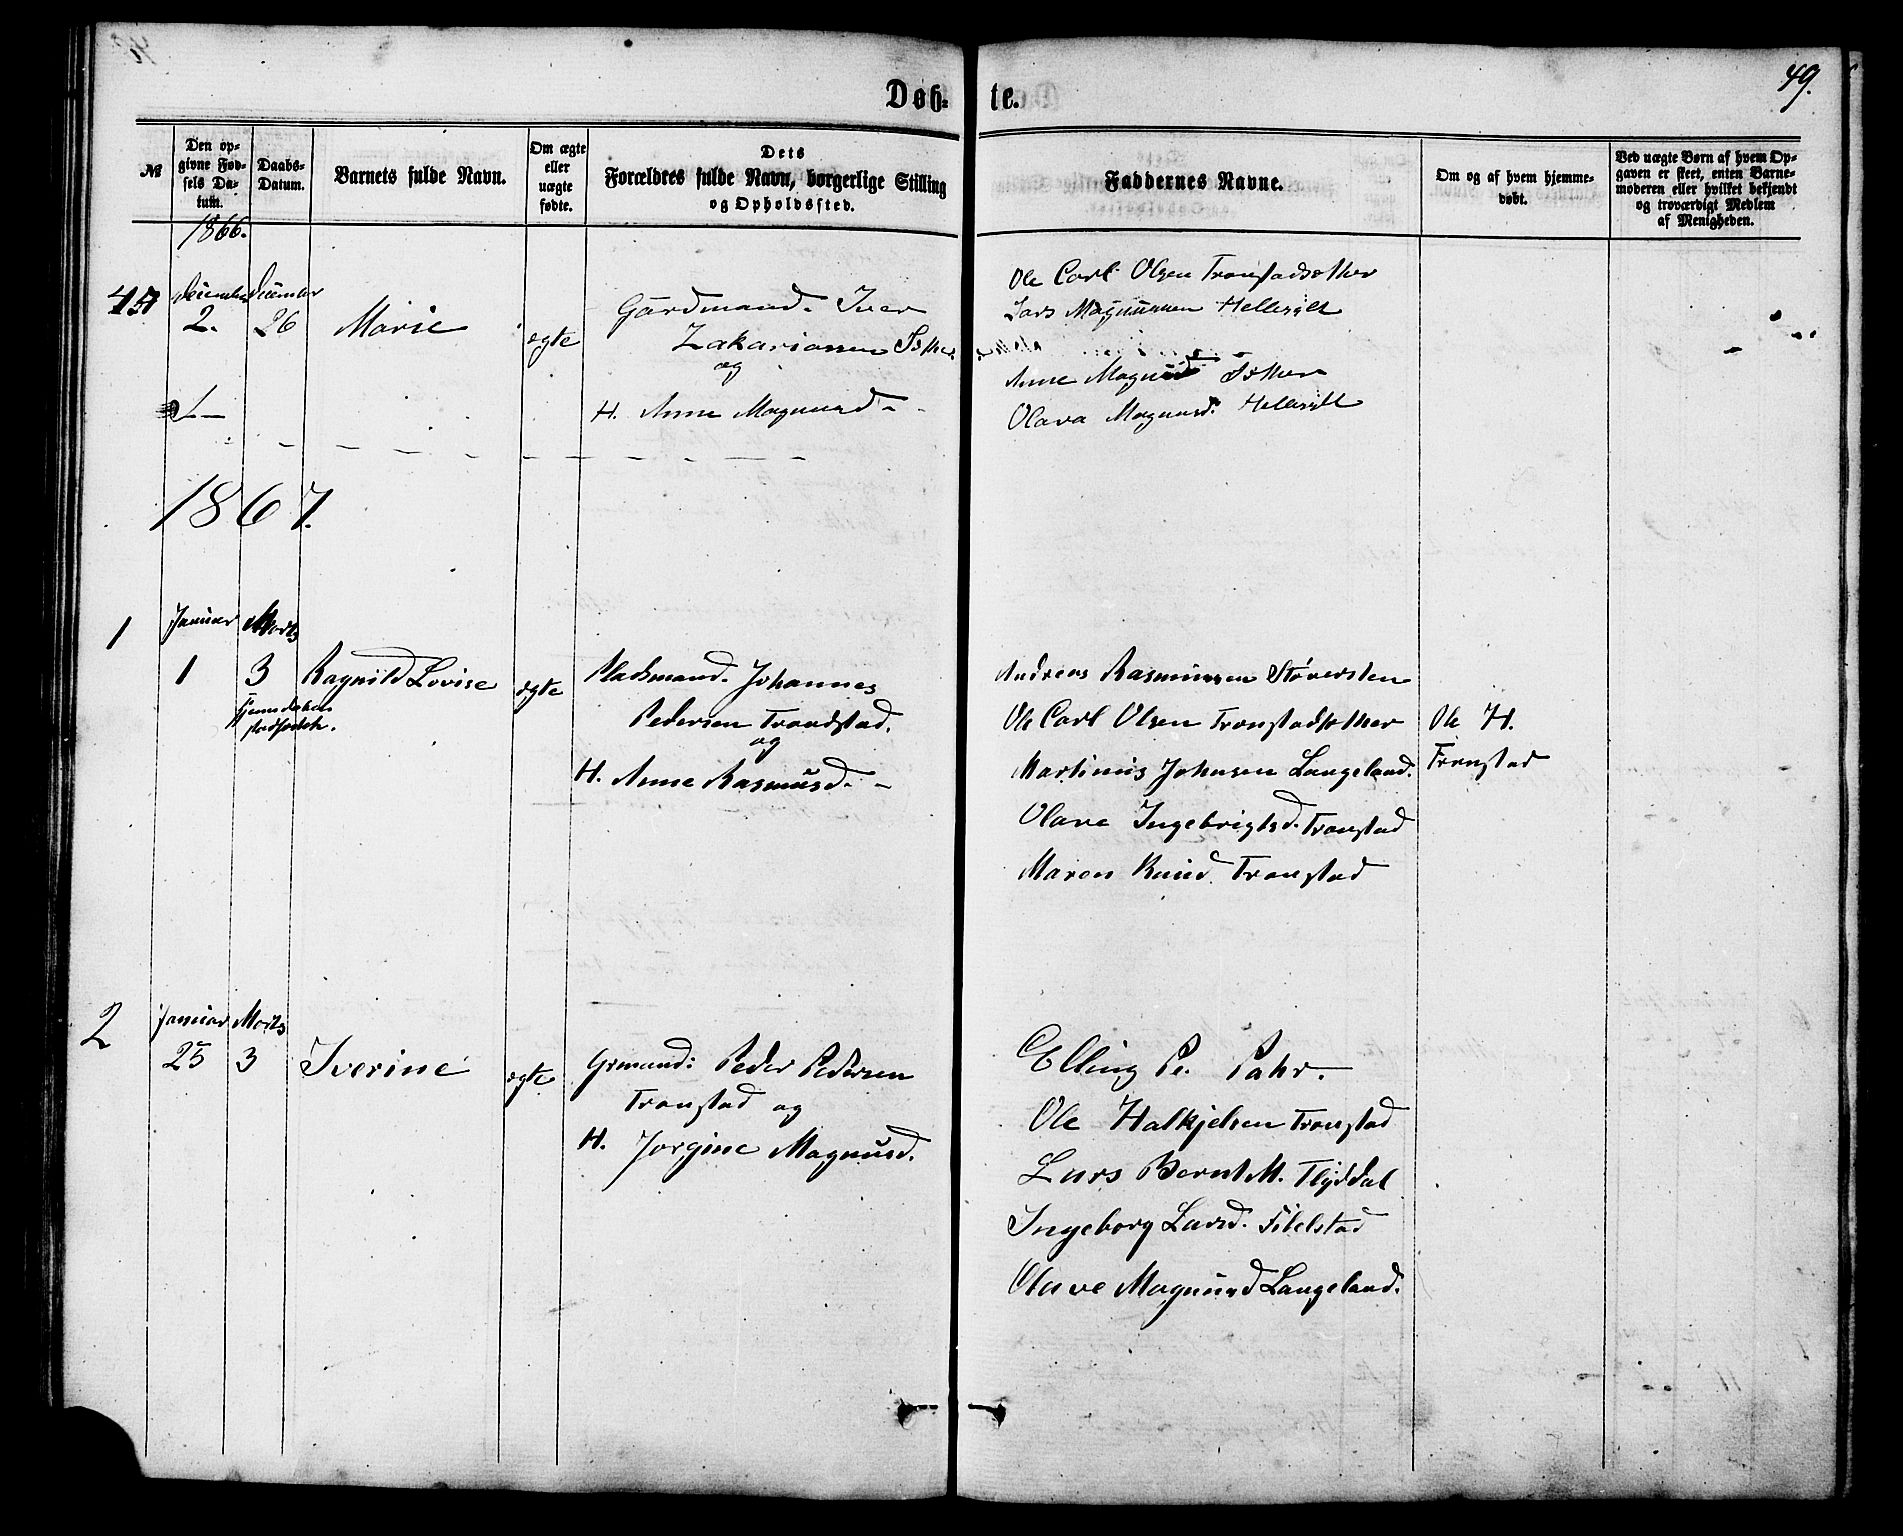 Døb- te.
49.
№
Den op-
givne Fød-
sels Da-
tum.
Daabs-
Datum.
Barnets fulde Navn.
Om ægte
eller
uægte
fødte.
Dets
Forældres fulde Navn, borgerlige Stilling
og Opholdssted.
Faddernes Navne.
Om og af hvem hjemme-
døbt.
Ved uægte Børn af hvem Op-
gaven er skeet, enten Barne-
moderen eller hvilket bekjendt
og troværdigt Medlem
af Menigheden.
1866.
December December
2. 26 Marie ægte
Gårdmand. Iver
Zakariassen
og
H. Anne Magnusd. -
Ole Carl Olsen Tronstadsæther
Lars Magnussen Hellesylt
Anne Magnusd Sæther
Olava Magnusd. Hellesylt
1867.
1
Januar Marts
1 3 Ragnild Lovise ægte
Hjemmedaaben
stadfæstet.
Pladsmand. Johannes
Pedersen Trondstad.
og
H. Anne Rasmusd. -
Andreas Rasmussen Støversten
Ole Carl Olsen Tronstadsæther
Martinus Johnsen Langeland.
Olave Ingebrigtsd. Tronstad
Maren Knud. Tronstad
Ole H.
Tronstad
2
Januar Marts
25 3 Iverine ægte
Grmand: Peder Pedersen
Tronstad og
H. Jorgine Magnusd.
Elling Pe. Pahr.
Ole Halkjelsen Tronstad
Lars Bernt M. Flyddal
Ingeborg Larsd. Fibelstad
Olave Magnusd Langeland.